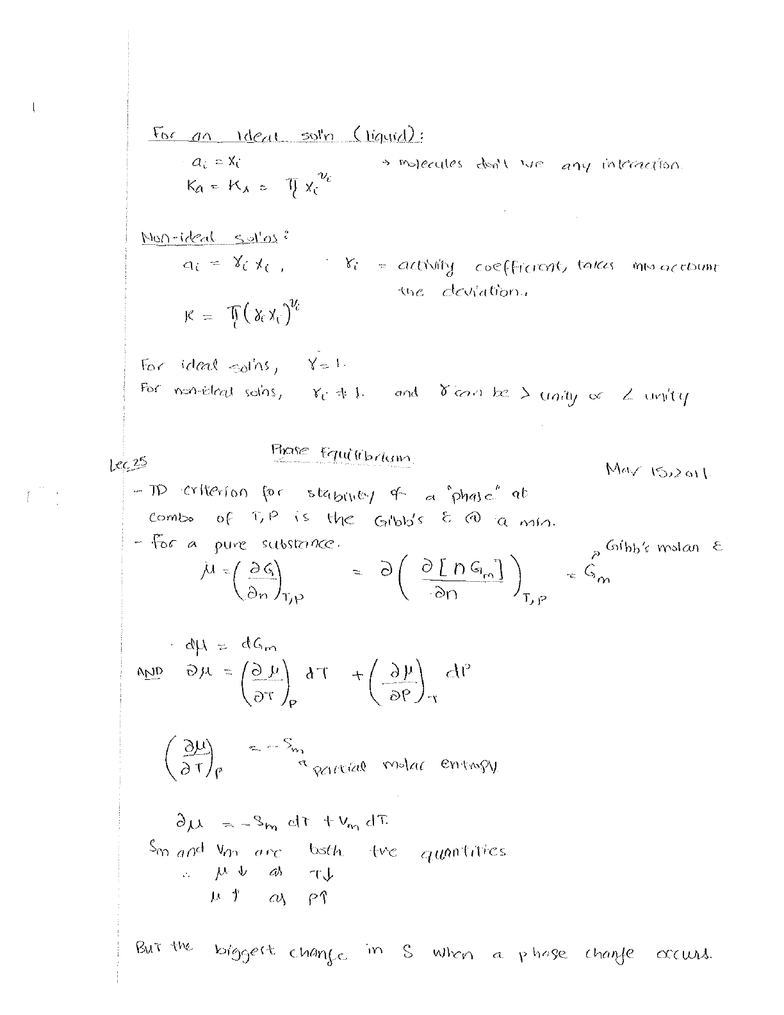 For an Ideal sol'n (liquid):
ai = xi → molecules don't have any interaction
Ka = Kx = π xi^νi
Non-ideal sol'ns:
ai = γi xi, γi = activity coefficient, takes into account
the deviation.
K = π_i (γi xi)^νi
For ideal sol'ns, γ = 1.
For non-ideal solns, γi ≠ 1. and γ can be > unity or < unity
Phase Equilibrium
Lec 25
Mar 15, 2011
- TD criterion for stability of a "phase" at
combo of T,P is the Gibb's E @ a min.
- For a pure substance.
Gibb's molar E
μ = (∂G/∂n)_T,P = ∂(∂[nGm]/∂n)_T,P = Gm
dμ = dGm
AND ∂μ = (∂μ/∂T)_P dT + (∂μ/∂P)_T dP
(∂μ/∂T)_P = -Sm
partial molar entropy
∂μ = -Sm dT + Vm dT.
Sm and Vm are both +ve quantities
∴ μ↓ as T↓
μ↑ as P↑
But the biggest change in S when a phase change occurs.